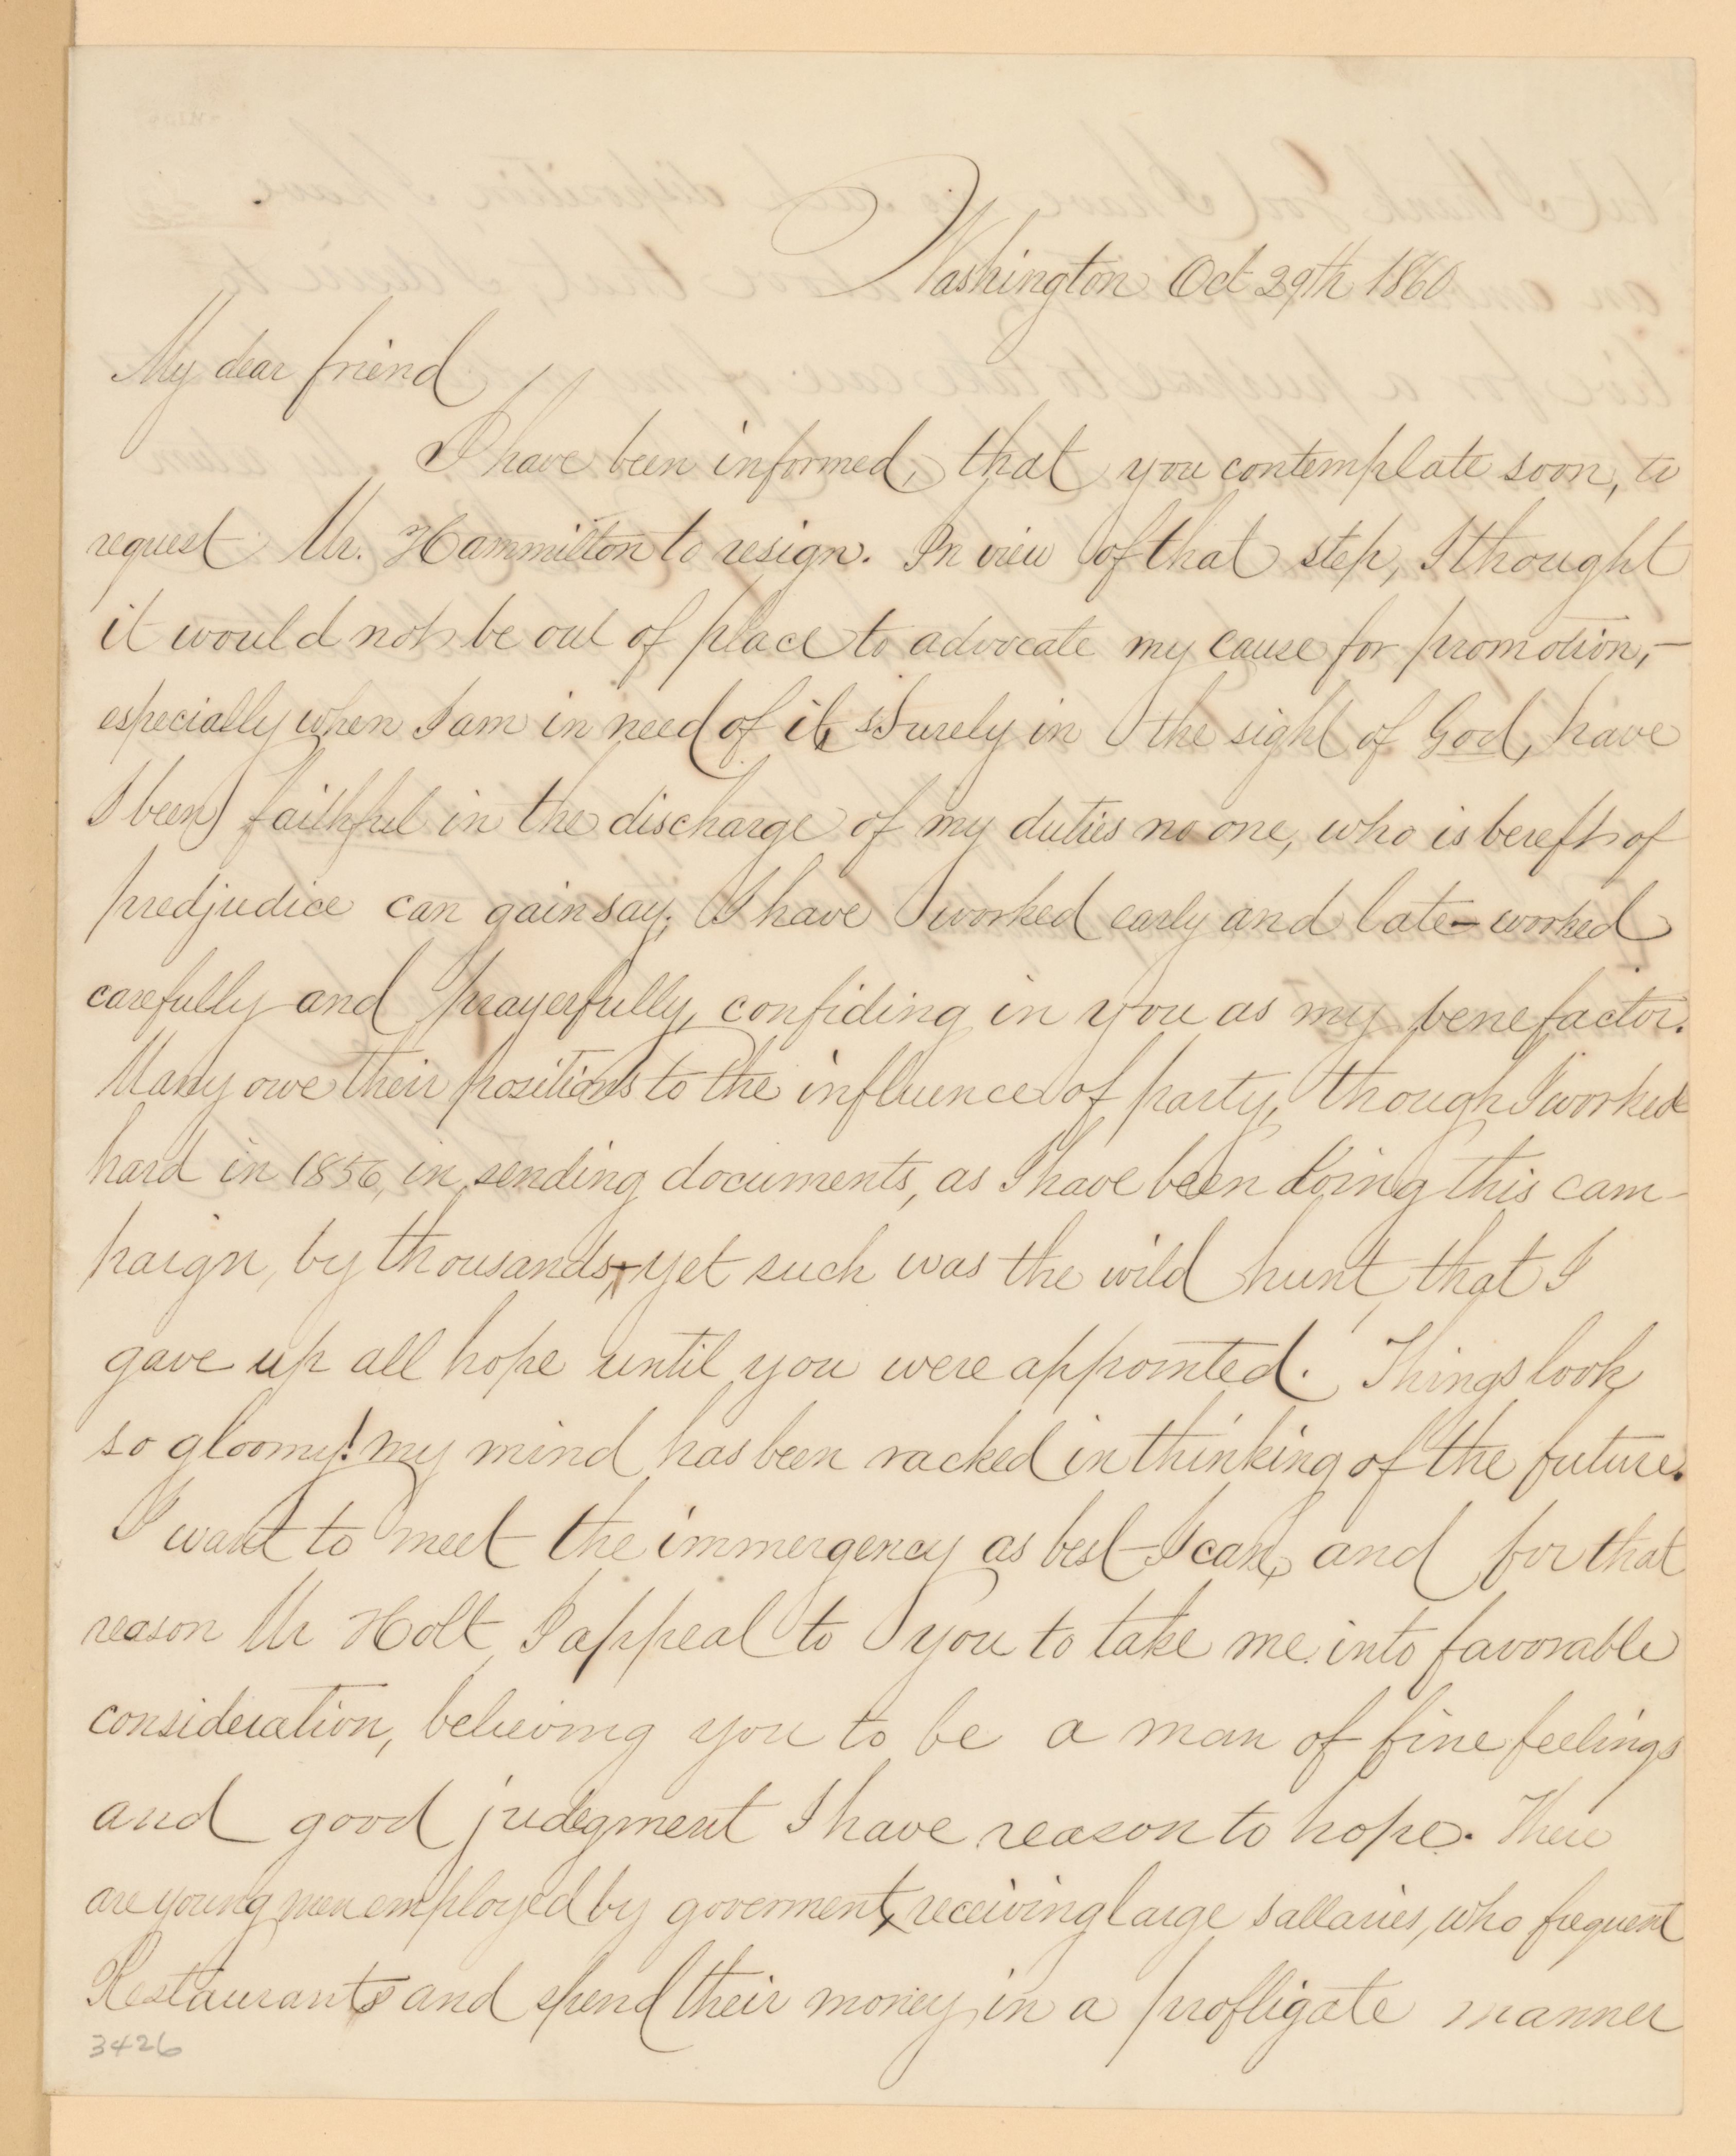 Washington Oct 29th 1860
My dear friend
I have been informed, that you contemplate soon, to
request Mr. Hammilton to resign. In view of that step, I thought
it would not be out of place to advocate my cause for promotion,–
especially when I am in need of it, Surely in the sight of God, have
I been faithful in the discharge of my duties no one, who is bereft of
predjudice can gainsay; I have worked early and late – worked
carefully and prayerfully, confiding in you as my benefactor.
Many owe their positions to the influence of party, though I worked
hard in 1856, in sending documents, as I have been doing this cam-
paign, by thousands – yet such was the wild hunt, that I
gave up all hope until you were appointed. Things look
so gloomy! my mind has been racked in thinking of the future.
I want to meet the immergency as best I can, and for that
reason Mr Holt, I appeal to you to take me into favorable
consideration, believing you to be a man of fine feelings
and good judegment I have reason to hope. There
are young men employed by goverment, receiving large sallaries, who frequent
Restaurants and spend their money in a profligate manner
3426